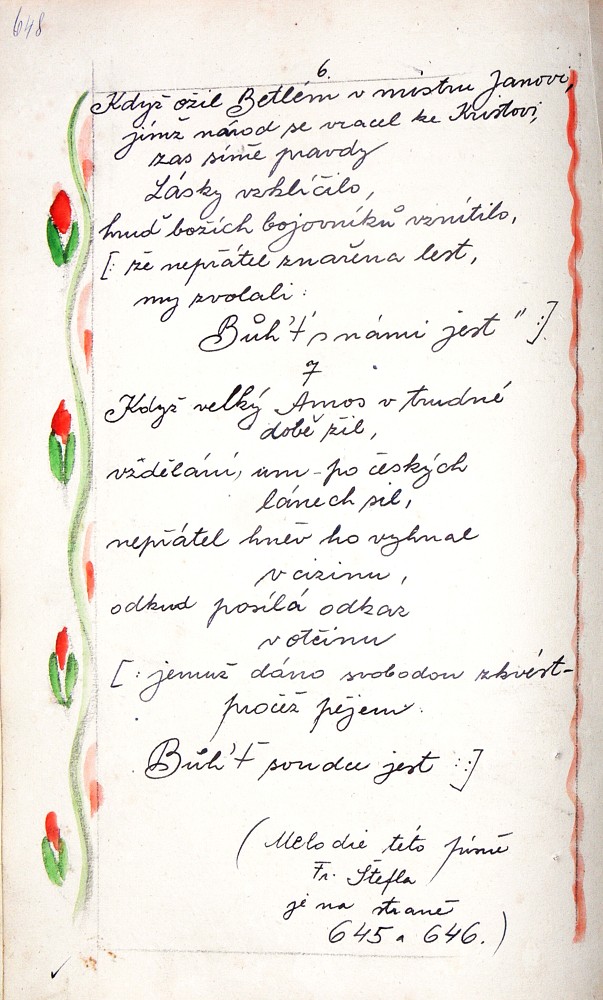 648
6.
Když ožil Betlém v mistru Janovi,
jímž národ se vracel ke Kristovi,
zas símě pravdy
Lásky vzklíčilo,
hruď božích bojovníků vznítilo,
[: že nepřátel zmařena lest,
my zvolali:
Bůh's námi jest" :]
7
Když velký Amos v trudné
době žil,
vzdělání, um po českých
lánech sil,
nepřátel hněv ho vyhnal
v cizinu,
odkud posílá odkaz
v otčinu
[: jemuž dáno svobodou zkvést-
pročež pějem:
Bůh soudce jest :]
(Melodie této písně
Fr. Štefla
je na straně
645 a 646.)